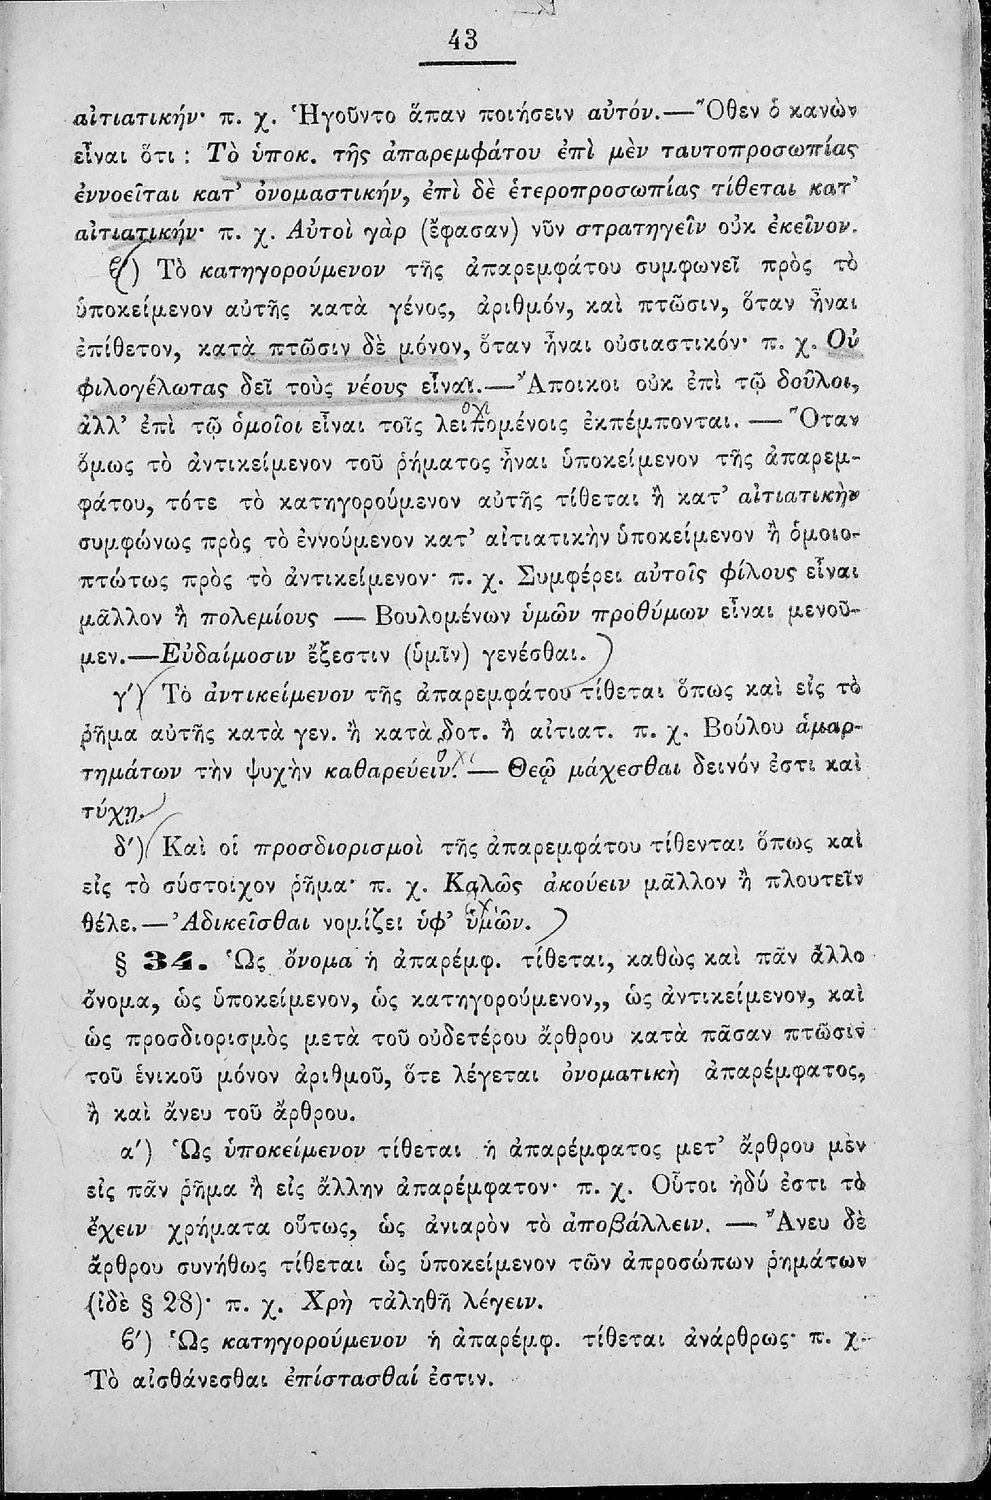 43
αἰτιατικήν· π. χ. Ἡγοῦντο ἅπαν ποιήσειν αὐτόν.—Ὅθεν ὁ κανὼν
εἶναι ὅτι : Τὸ ὑποκ. τῆς ἀπαρεμφάτου ἐπὶ μὲν ταυτοπροσωπίας
ἐννοεῖται κατ’ ὀνομαστικήν, ἐπὶ δὲ ἑτεροπροσωπίας τίθεται κατ’
αἰτιατικήν· π. χ. Αὐτοὶ γὰρ (ἔφασαν) νῦν στρατηγεῖν οὐκ ἐκεῖνον.
ϐ′) Τὸ κατηγορούμενον τῆς ἀπαρεμφάτου συμφωνεῖ πρὸς τὸ
ὑποκείμενον αὐτῆς κατὰ γένος, ἀριθμόν, καὶ πτῶσιν, ὅταν ἦναι
ἐπίθετον, κατὰ πτῶσιν δὲ μόνον, ὅταν ἦναι οὐσιαστικόν· π. χ. Οὐ
φιλογέλωτας δεῖ τοὺς νέους εἶναι.—Ἄποικοι οὐκ ἐπὶ τῷ δοῦλοι,
ἀλλ’ ἐπὶ τῷ ὁμοῖοι εἶναι τοῖς λειπομένοις ἐκπέμπονται. — Ὅταν
ὅμως τὸ ἀντικείμενον τοῦ ῥήματος ἦναι ὑποκείμενον τῆς ἀπαρεμ-
φάτου, τότε τὸ κατηγορούμενον αὐτῆς τίθεται ἢ κατ’ αἰτιατικὴν
συμφώνως πρὸς τὸ ἐννούμενον κατ’ αἰτιατικὴν ὑποκείμενον ἢ ὁμοιο-
πτώτως πρὸς τὸ ἀντικείμενον· π. χ. Συμφέρει αὐτοῖς φίλους εἶναι
μᾶλλον ἢ πολεμίους — Βουλομένων ὑμῶν προθύμων εἶναι μενοῦ-
μεν.—Εὐδαίμοσιν ἔξεστιν (ὑμῖν) γενέσθαι.
γ′) Τὸ ἀντικείμενον τῆς ἀπαρεμφάτου τίθεται ὅπως καὶ εἰς τὸ
ῥῆμα αὐτῆς κατὰ γεν. ἢ κατὰ δοτ. ἢ αἰτιατ. π. χ. Βούλου ἁμαρ-
τημάτων τὴν ψυχὴν καθαρεύειν. — Θεῷ μάχεσθαι δεινόν ἐστι καὶ
τύχῃ.
δ′) Καὶ οἱ προσδιορισμοὶ τῆς ἀπαρεμφάτου τίθενται ὅπως καὶ
εἰς τὸ σύστοιχον ῥῆμα· π. χ. Καλῶς ἀκούειν μᾶλλον ἢ πλουτεῖν
θέλε.—Ἀδικεῖσθαι νομίζει ὑφ’ ὑμῶν.
§ 34. Ὡς ὄνομα ἡ ἀπαρέμφ. τίθεται, καθὼς καὶ πᾶν ἄλλο
ὄνομα, ὡς ὑποκείμενον, ὡς κατηγορούμενον,, ὡς ἀντικείμενον, καὶ
ὡς προσδιορισμὸς μετὰ τοῦ οὐδετέρου ἄρθρου κατὰ πᾶσαν πτῶσιν
τοῦ ἑνικοῦ μόνον ἀριθμοῦ, ὅτε λέγεται ὀνοματικὴ ἀπαρέμφατος,
ἢ καὶ ἄνευ τοῦ ἄρθρου.
α′) Ὡς ὑποκείμενον τίθεται ἡ ἀπαρέμφατος μετ’ ἄρθρου μὲν
εἰς πᾶν ῥῆμα ἢ εἰς ἄλλην ἀπαρέμφατον· π. χ. Οὗτοι ἡδύ ἐστι τὸ
ἔχειν χρήματα οὕτως, ὡς ἀνιαρὸν τὸ ἀποβάλλειν. — Ἄνευ δὲ
ἄρθρου συνήθως τίθεται ὡς ὑποκείμενον τῶν ἀπροσώπων ῥημάτων
(ἰδὲ § 28)· π. χ. Χρὴ τἀληθῆ λέγειν.
ϐ′) Ὡς κατηγορούμενον ἡ ἀπαρέμφ. τίθεται ἀνάρθρως· π. χ.
Τὸ αἰσθάνεσθαι ἐπίστασθαί ἐστιν.